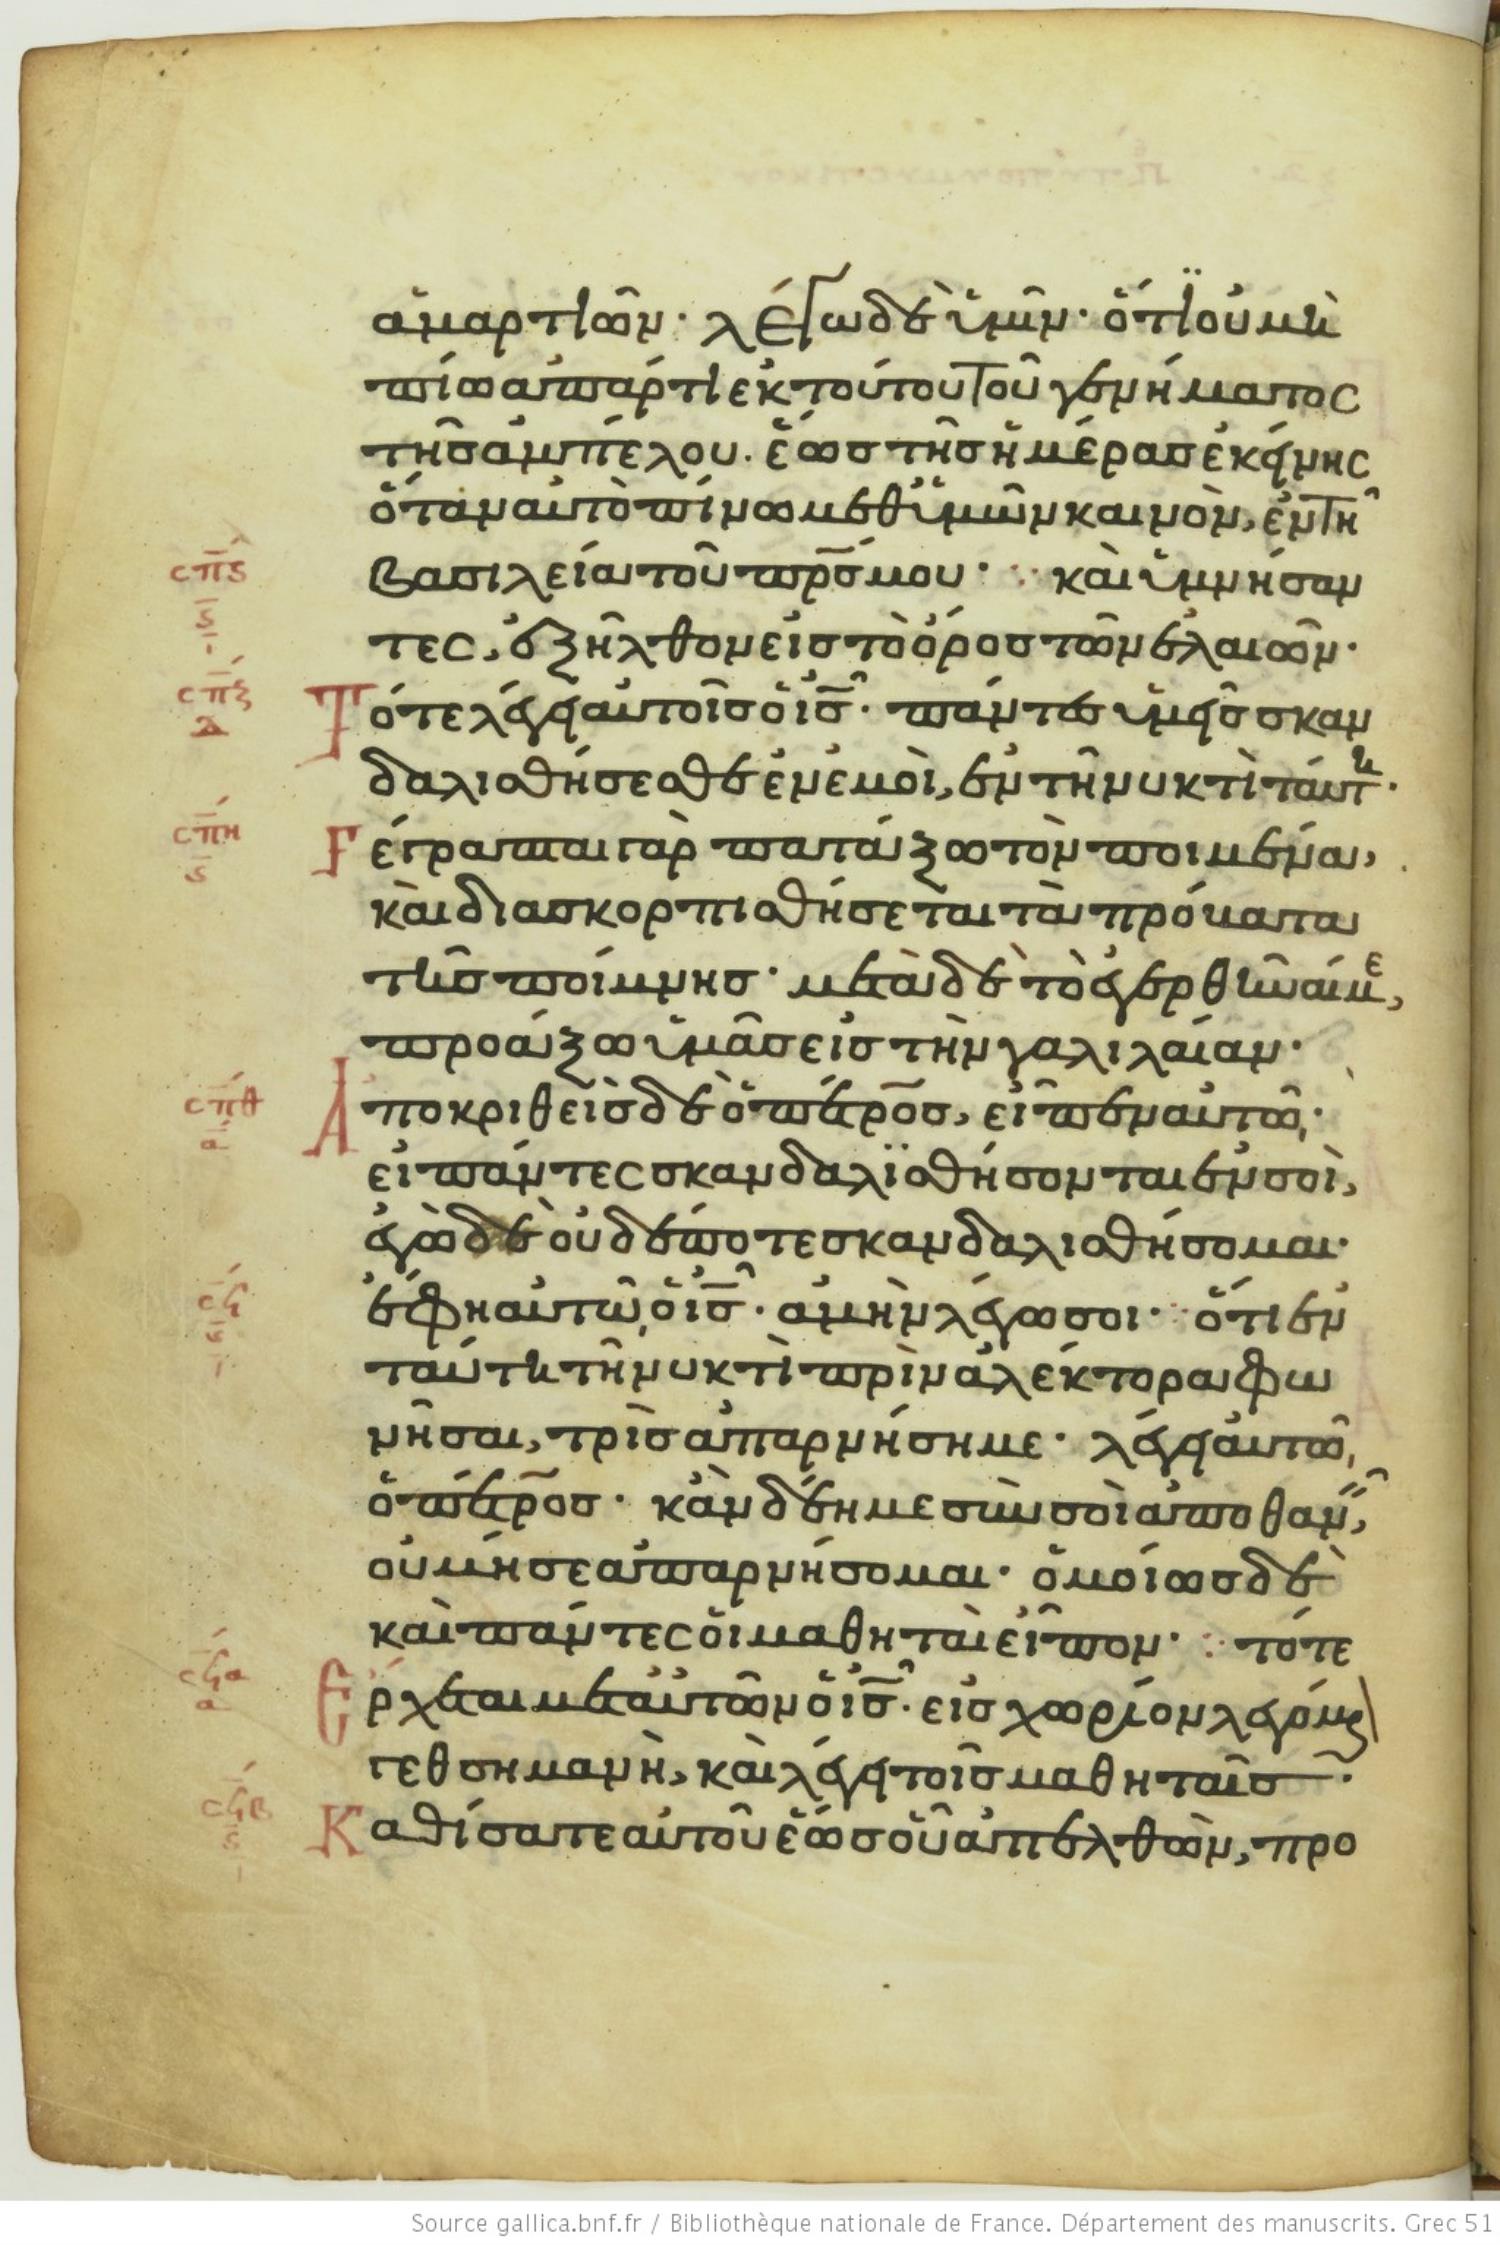 ἁμαρτιῶν· λέγω δὲ ὑμῖν· ὅτι οὐ μὴ
πίω ἀπάρτι ἐκ τούτου τοῦ γενήματος
τῆς ἀμπέλου. ἕως τῆς ἡμέρας ἐκείνης
ὅταν αὐτὸ πίνω μεθ ὑμῶν καινὸν, ἐν τῆ
σπϛ
ϛ
βασιλεία τοῦ πρ̅ς μου· καὶ ὑμνήσαν
τες, ἐξῆλθον εἰς τὸ ὄρος τῶν ἐλαιῶν·
σπζ
δ
Τότε λέγει αὐτοῖς ὁ ις̅· πάντες ὑμεῖς σκαν
δαλισθήσεσθε ἐν ἐμοὶ, ἐν τῆ νυκτὶ ταύτη·
σπη
ϛ
Γέγραπται γὰρ πατάξω τὸν ποιμένα,
καὶ διασκορπισθήσεται τὰ πρόβατα
τῆς ποίμνης· μετὰ δὲ τὸ ἐγερθῆναί με,
προάξω ὑμᾶς εἰς τὴν γαλιλαίαν·
σπθ
α
Ἀποκριθεὶς δὲ ὁ πέτρος, εἶπεν αὐτῶ·
εἰ πάντες σκανδαλϊσθήσονται ἐν σοὶ,
ἐγὼ δὲ οὐδέποτε σκανδαλισθήσομαι·
σϟ
ϛ
ἔφη αὐτῶ ὁ ις̅· ἀμὴν λέγω σοι· ὅτι ἐν
ταύτη τῆ νυκτὶ πρὶν ἀλέκτορα φω
νῆσαι, τρὶς ἀπαρνήση με· λέγει αὐτῶ
ὁ πέτρος· κἂν δέη με σὺν σοὶ ἀποθανεῖν,
οὐ μή σε ἀπαρνήσομαι· ὁμοίως δὲ
καὶ πάντες οἱ μαθηταὶ εἶπον· τότε
σϟα
α
Ἔρχεται μετ αὐτῶν ὁ ις̅· εἰς χωρίον λεγόμε
σϟβ
ϛ
γεθσημανὴ, καὶ λέγει τοῖς μαθηταῖς·
Καθίσατε αὐτοῦ ἕως οὗ ἀπελθὼν, προ
Source gallica.bnf.fr / Bibliothèque nationale de France. Département des manuscrits. Grec 51